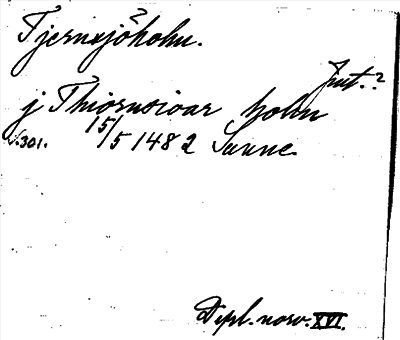 Tjernsjöholm.
Jmt.?
j Thiornsioar holm
S.301. 15/5 1482 Sunne.
Dipl. norv. XVI.